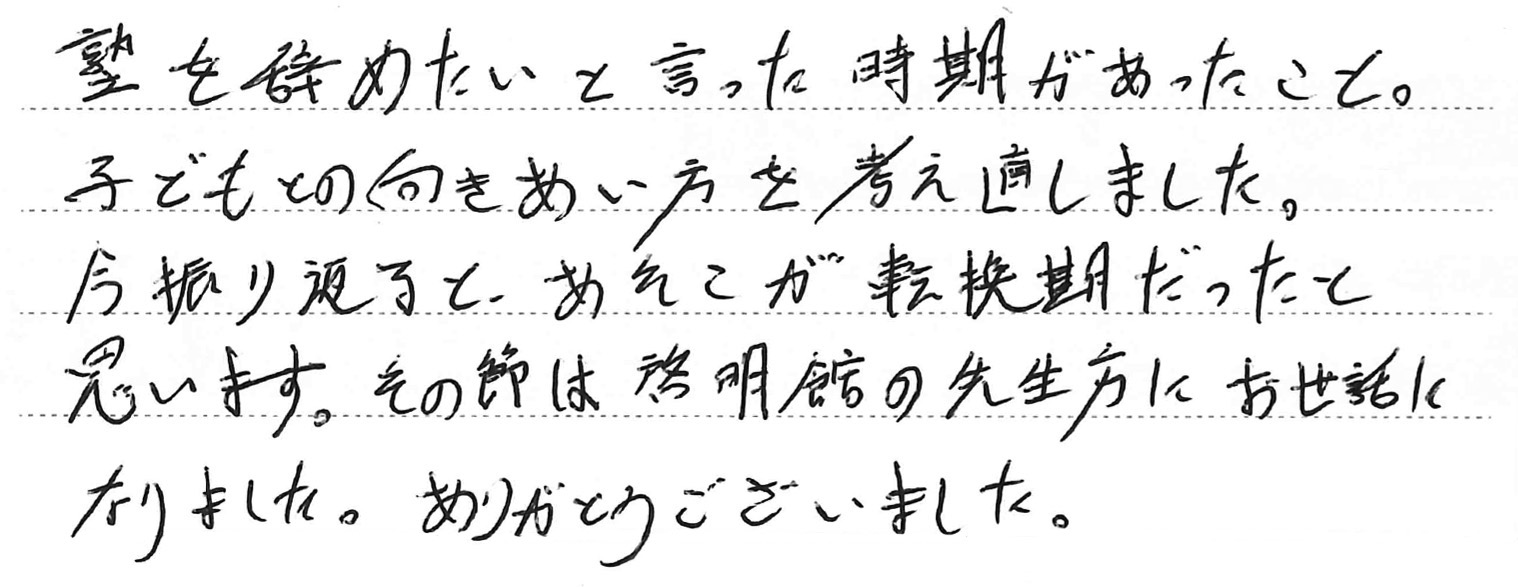 塾を辞めたいと言った時期があったこと。
子どもとの向きあい方を考え直しました。
今振り返ると、あそこが転換期だったと
思います。その節は啓明館の先生方にお世話に
なりました。ありがとうございました。